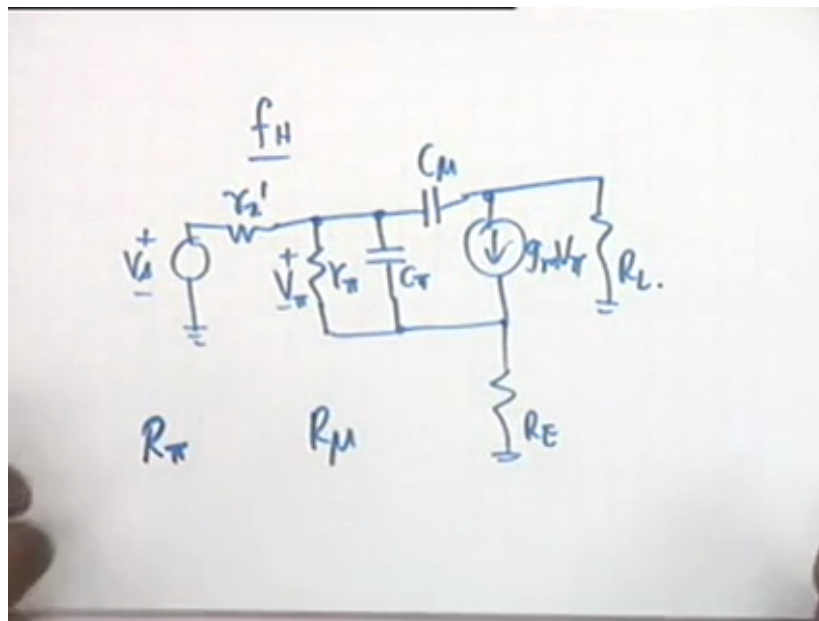 f_H
C_μ
r_x'
+
V_s
-
+
V_π
-
r_π
C_π
g_m V_π
R_L.
R_π
R_μ
R_E